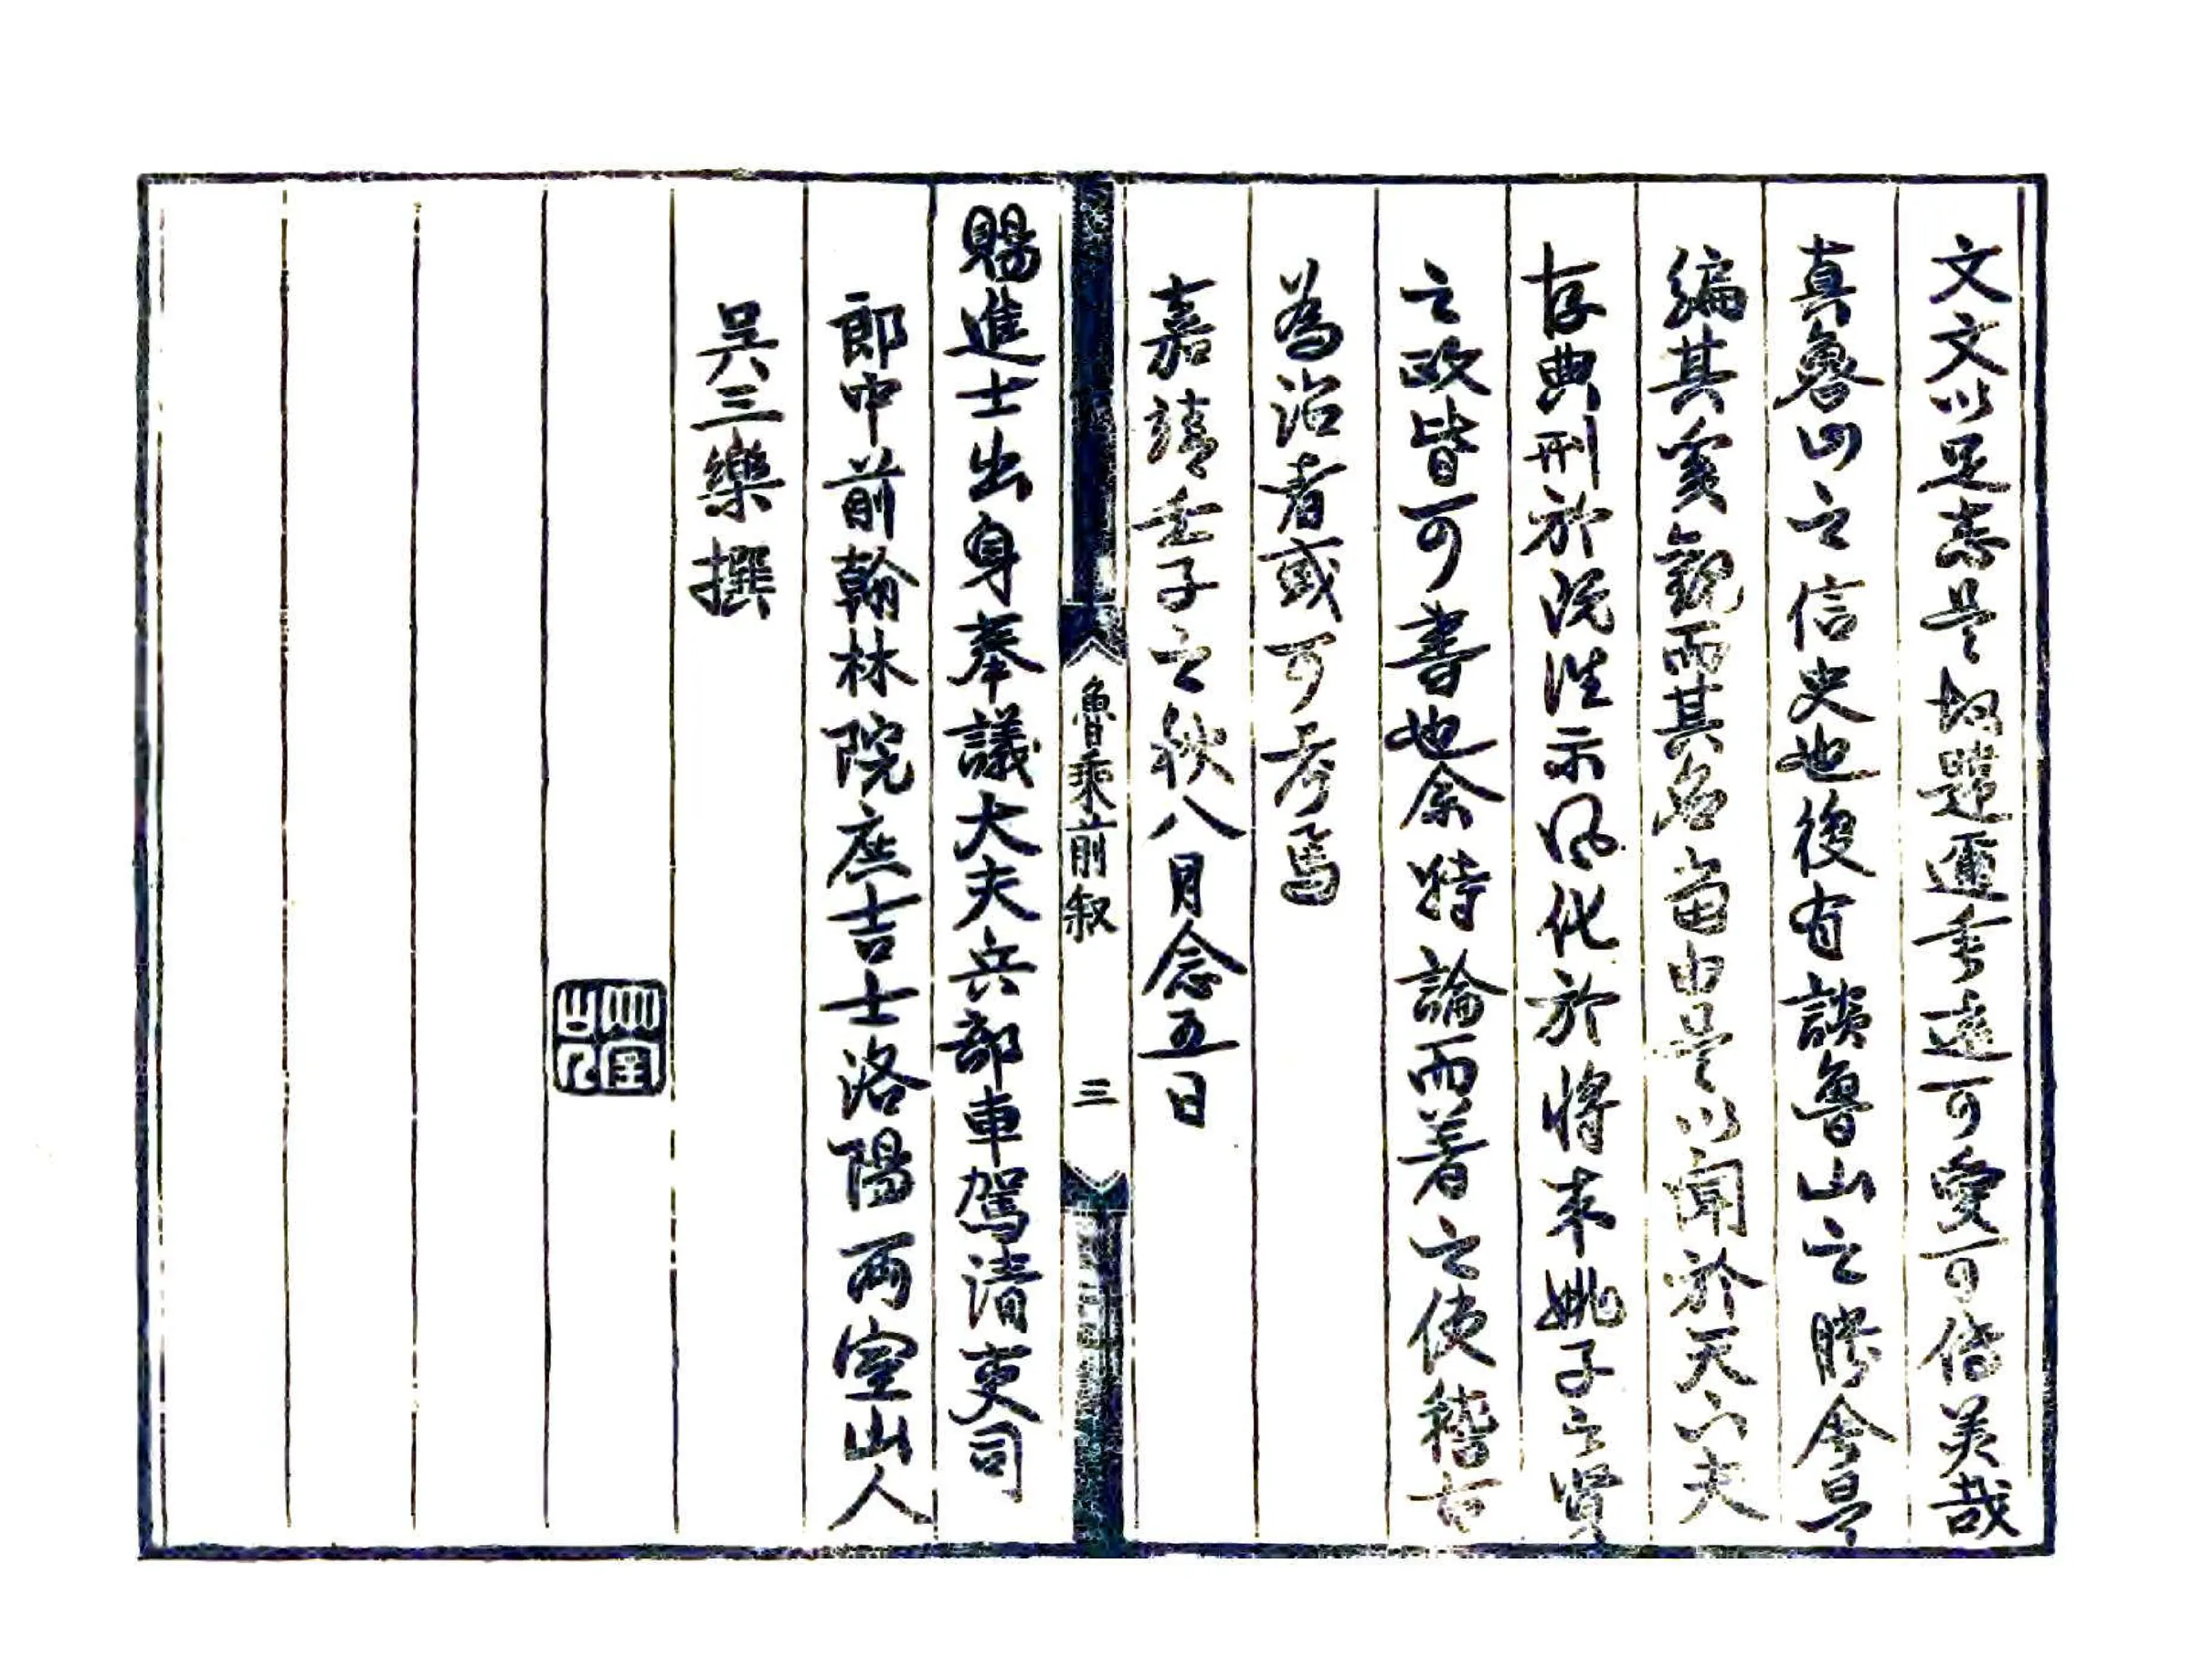 文文以足志是故甓邇垂遠可愛可傳美哉
真魯山之信史也後有談魯山之勝舍是
編其奚觀而其名當由是以聞於天下夫
存典刑於既往示風化於將來姚子之賢
之政皆可書也余特論而著之使稽古
為治者或可考焉
嘉靖壬子之秋八月念五日
魯乘前叙
三
賜進士出身奉議大夫兵部車駕清吏司
郎中前翰林院庶吉士洛陽兩室山人
吳三樂撰